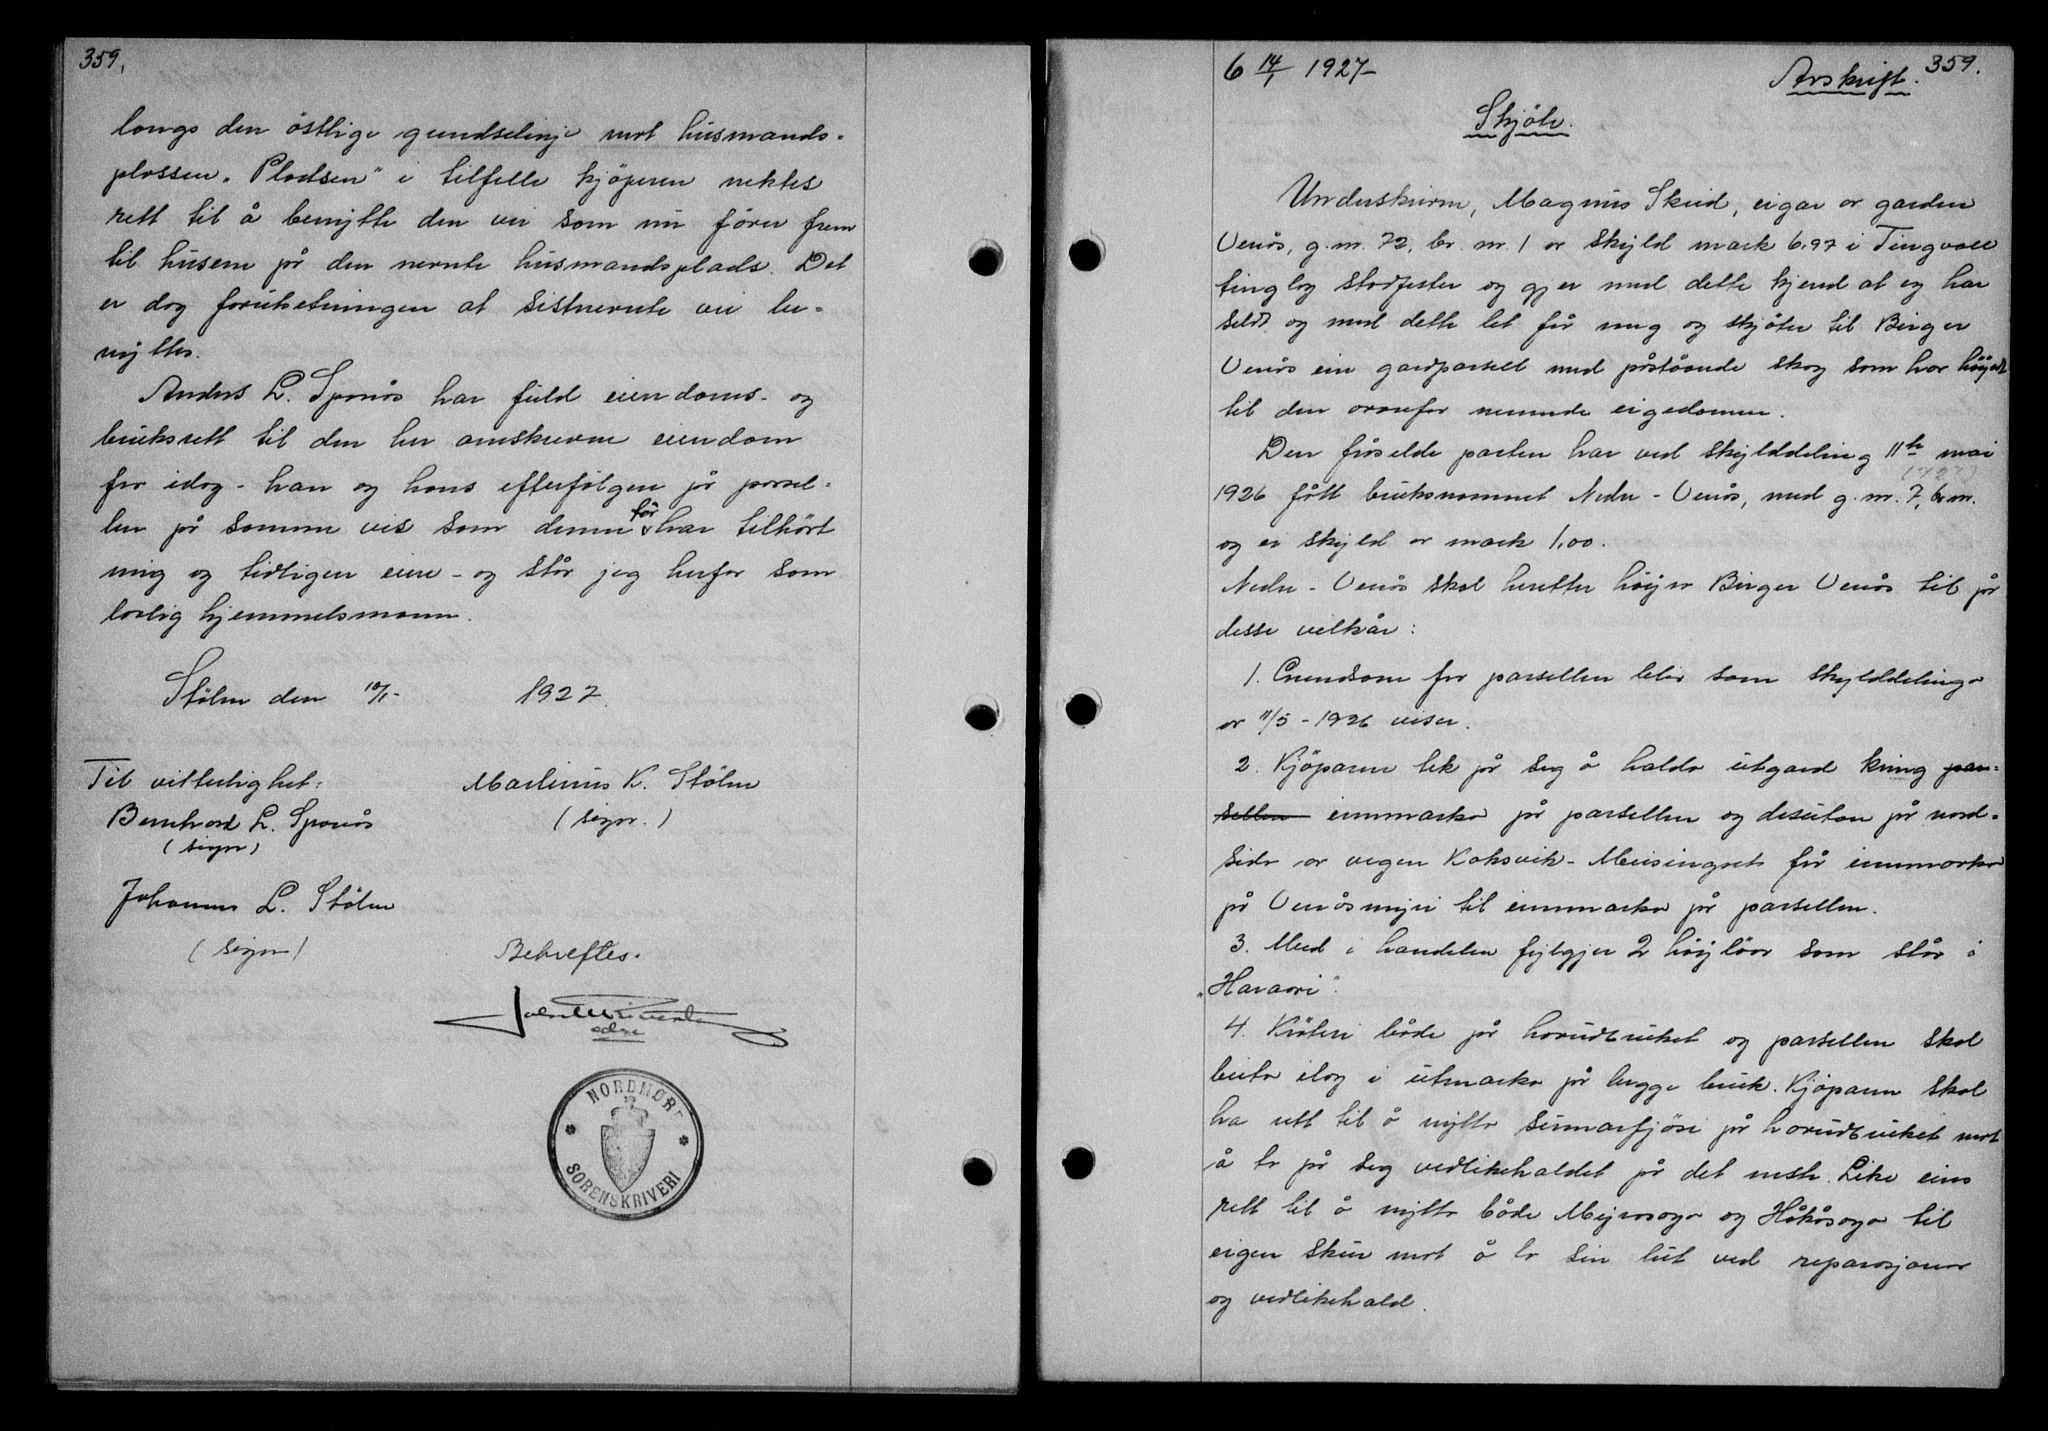 359.
langs den östlige grændselinje mot husmands-
plassen „Pladsen" i tilfelle kjöperen nektes
rett til å benytte den vei som nu förer frem
til husene på den nevnte husmandsplads. Det
er dog forutsetningen at sistnevnte vei be-
nyttes.
Anders L. Sponås har fuld eiendoms- og
bruksrett til den her omskrevne eiendom
fra idag - han og hans efterfølgere på parsel-
len på samme vis som denne før har tilhört
mig og tidligere eiere - og står jeg herfor som
lovlig hjemmelsmann.
Stølen den 10/1- 1927.
Til vitterlighet: Martinus K. Stølen
Bernhard L. Sponås (sign.)
(sign)
Johannes L. Stølen
(sign) Bekreftes.
NORDMØRE
SORENSKRIVERI
6 14/1 1927- Avskrift. 359.
Skjöte.
Underskreven, Magnus Skeid, eigar av garden
Venås, g.nr. 72, br. nr. 1 av skyld mark 6.97 i Tingvoll
tinglag stadfester og gjer med dette kjend at eg har
seldt og med dette let frå meg og skjöter til Birger
Venås ein gardparsell med påståande skog som har höyrt
til den ovanfor nemnde eigedomen.
Den fråselde parten har ved skylddeling 11te mai
1926 fått bruksnamnet Nedre-Venås, med g.nr. 7, br.nr.
og ei skyld av mark 1,00.
Nedre-Venås skal heretter höyra Birger Venås til på
desse vilkår:
1. Grendsone for parsellen blir som skylddelinga
av 11/5-1926 viser.
2. Kjöparen tek på seg å halda utgard kring par-
sellen innmarka på parsellen og desutan på nord-
sida av vegen Koksvik-Meisingset frå innmarka
på Venåsmyri til innmarka på parsellen.
3. Med i handelen fylgjer 2 höyløor som står i
„Haraori".
4. Krøteri både på hovudbruket og parsellen skal
beita ilag i utmarka på begge bruk. Kjöparen skal
ha rett til å nytta sumarfjösi på hovudbruket mot
å ta på seg vedlikehaldet på det meste. Like eins
rett til å nytta både Myrasaga og Håkåsaga til
eigen skur mot å ta sin lut ved reparasjonar
og vedlikehald.